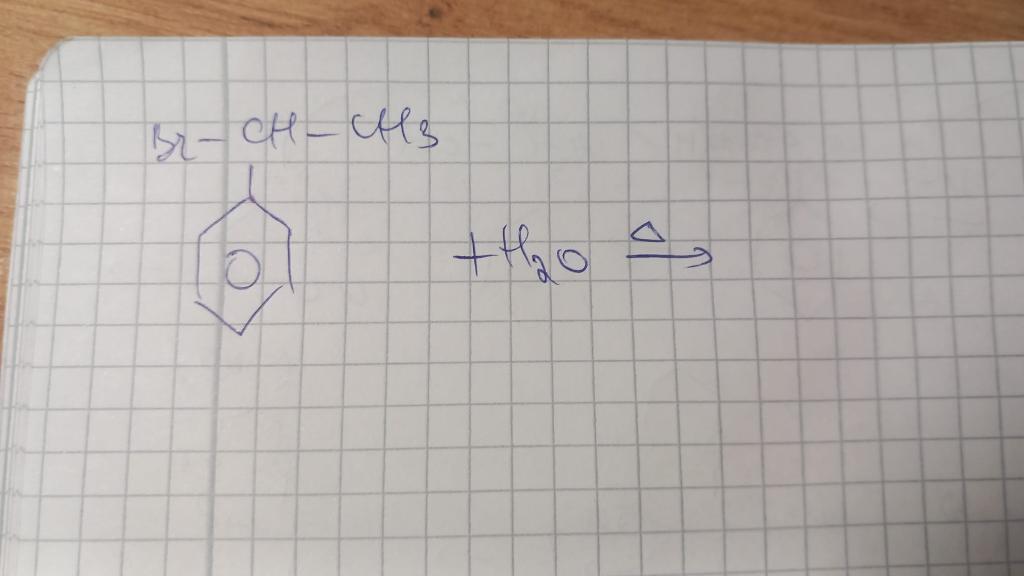 Br–CH–CH3
+H2O Δ→